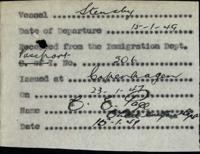 Vessel Stensby
Date of Departure 15-1-49
Received from the Immigration Dept.
Passport
C. of I. No. 206
Issued at Copenhagen
on 23-1-47
Name
Date 15-1-49